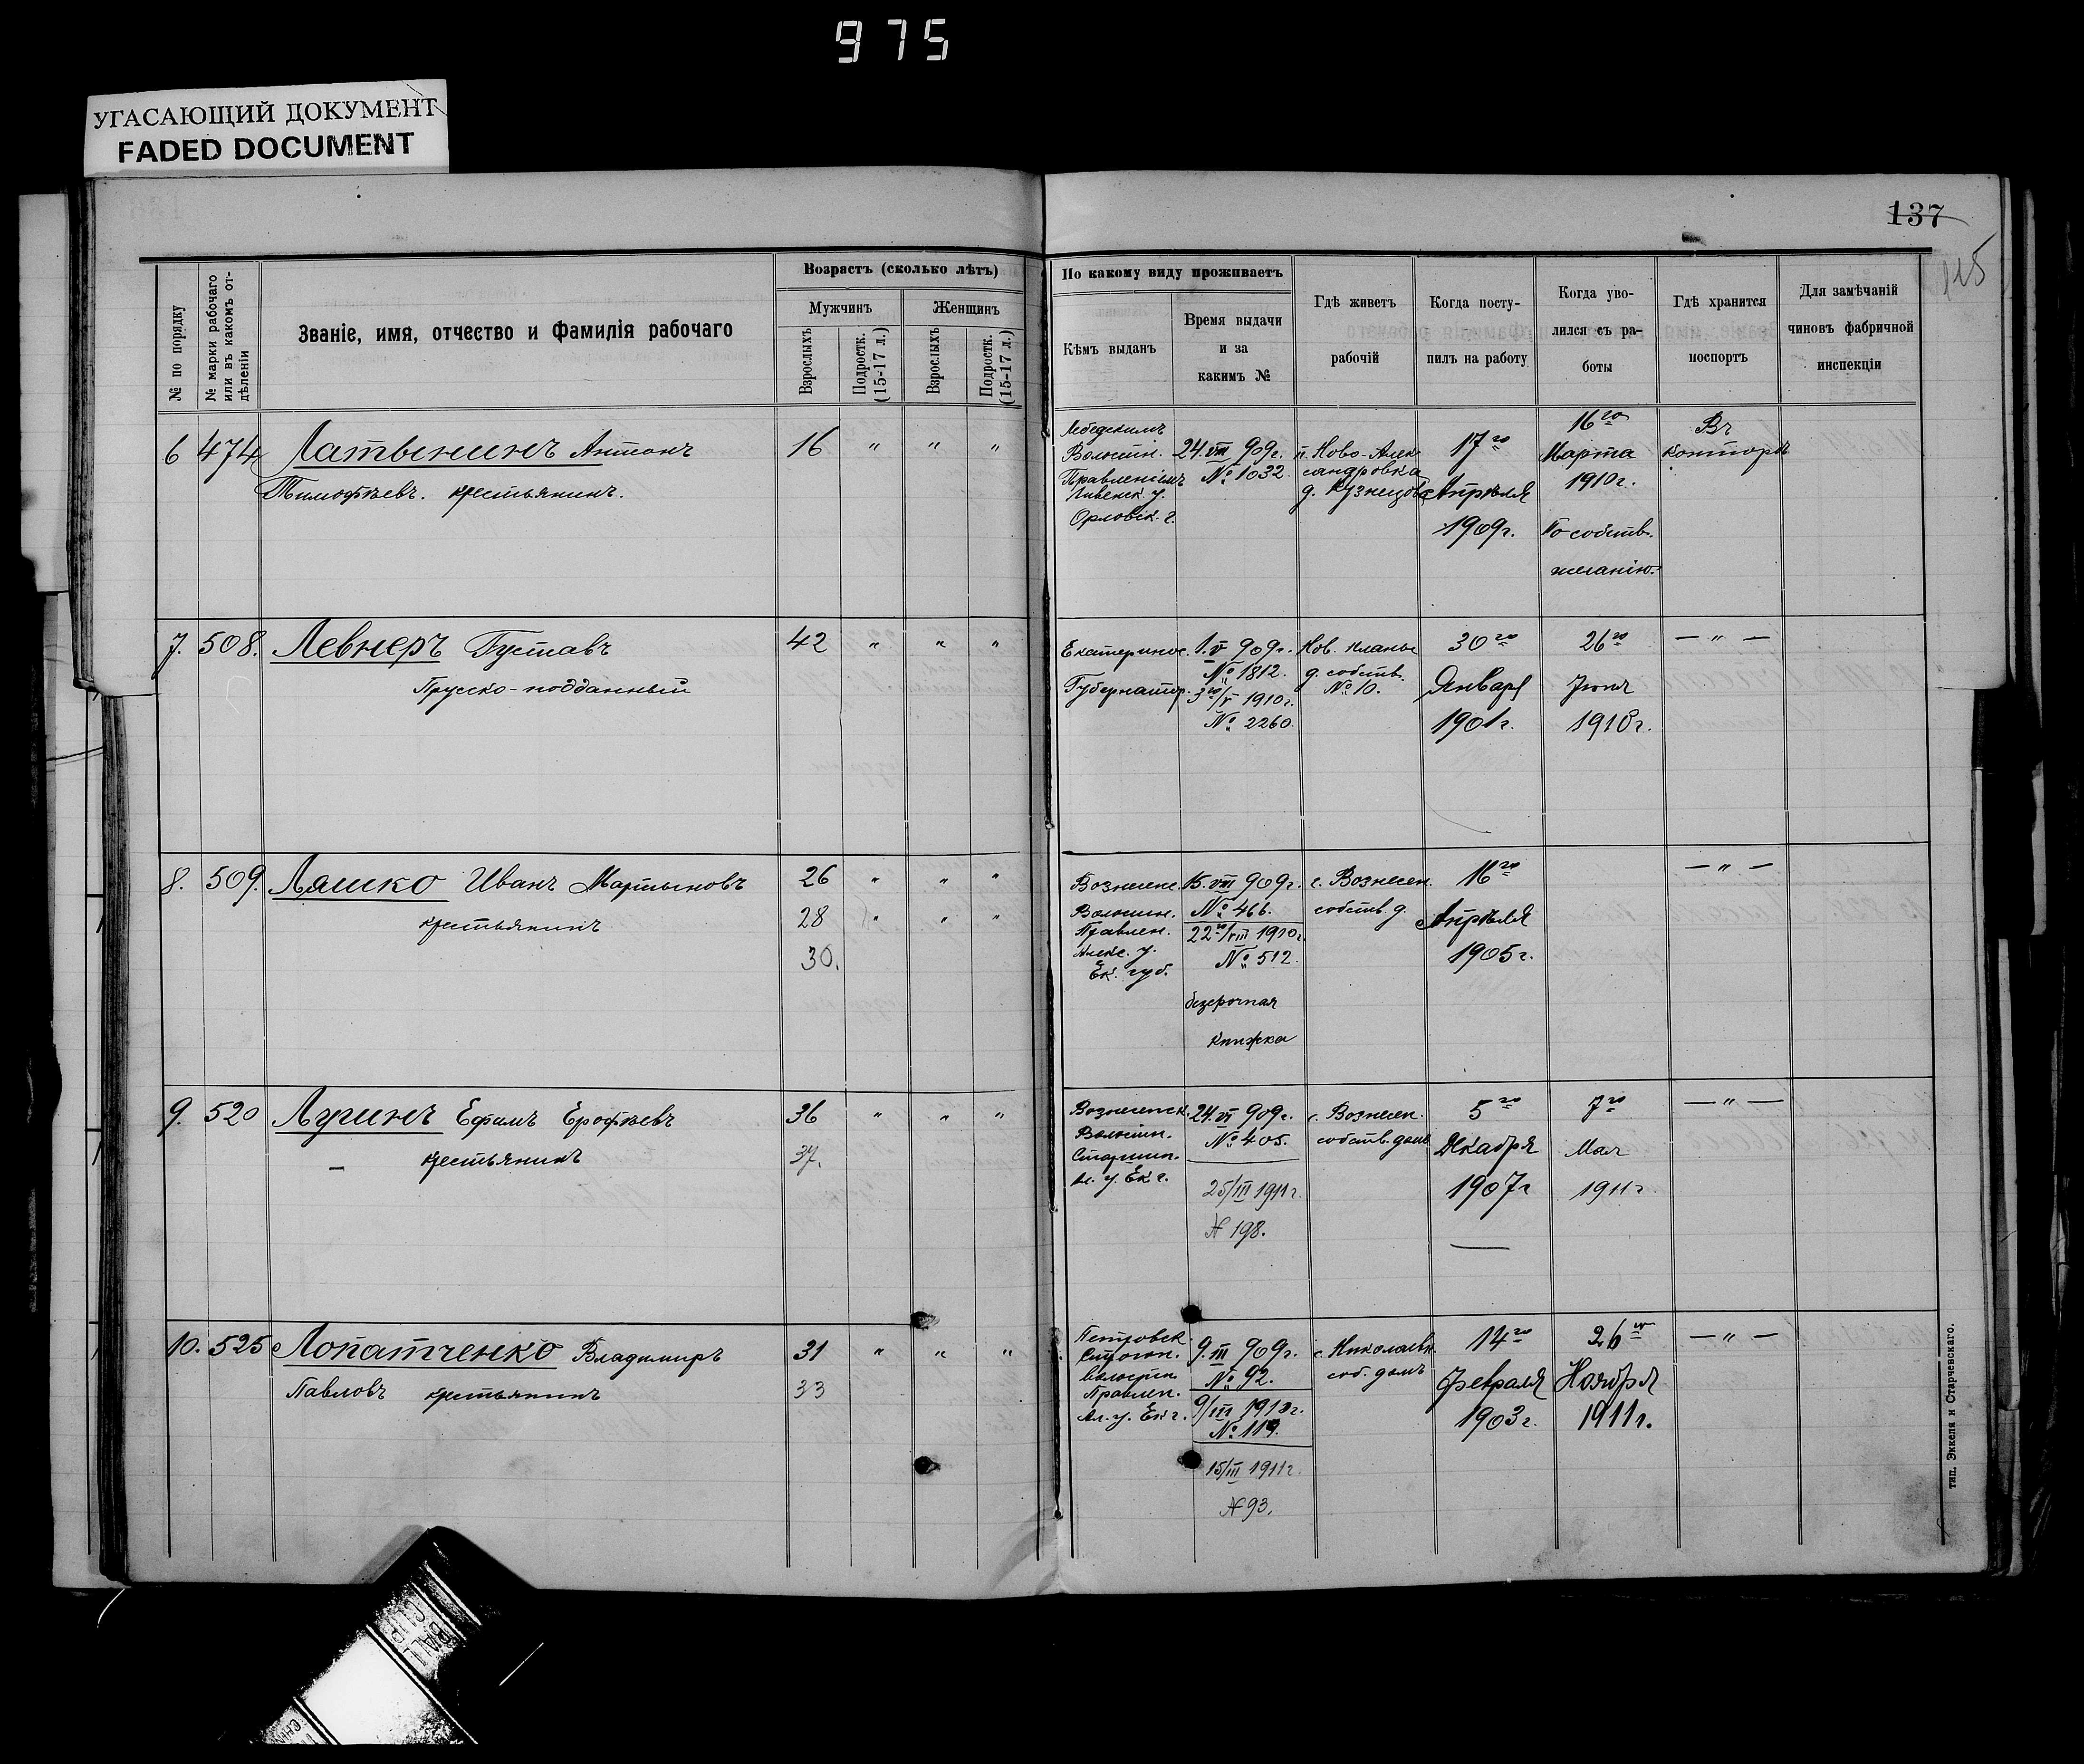 975
УГАСАЮЩИЙ ДОКУМЕНТ
FADED DOCUMENT
137
№ по порядку
№ марки рабочаго
или въ какомъ от-
дѣленіи
Званіе, имя, отчество и фамилія рабочаго
Возрастъ (сколько лѣтъ)
Мужчинъ
Женщинъ
Взрослыхъ
Подростк.
(15-17 л.)
Взрослыхъ
Подростк.
(15-17 л.)
По какому виду проживаетъ
Кѣмъ выданъ
Время выдачи
и за
какимъ №
Гдѣ живетъ
рабочій
Когда посту-
пилъ на работу
Когда уво-
лился съ ра-
боты
Гдѣ хранится
поспортъ
Для замѣчаній
чиновъ фабричной
инспекціи
6 474 Латынинъ Антонъ
Тимофѣевъ. крестьянинъ.
16 " " "
Волостн.
Правленіемъ
Ливенск. у.
Орловск. г.
24.VIII 909г.
№ 1032.
п. Ново-Алек
сандровка
д. Кузнецова
17го
Апрѣля
1909г.
16го
Марта
1910г.
По собств.
желанію.
Въ
конторѣ
7. 508. Левнеръ Густавъ
Прусско-подданный
42 " " "
Екатеринос.
Губернатор.
1.V 909г.
№ 1812.
3го/V 1910г.
№ 2260.
Нов. планы
д. собств.
№ 10.
30го
Января
1901г.
26го
Іюня
1910г.
— " —
8. 509. Ляшко Иванъ Мартыновъ
крестьянинъ
26 " " "
28 " " "
30.
Вознесенс.
Волостн.
Правлен.
Алекс. у.
Ек. губ.
15.VIII 909г.
№ 466.
22го/VIII 1910г.
№ 512.
безсрочная
книжка
с. Вознесен.
собств. д.
16го
Апрѣля
1905г.
— " —
9. 520 Лугинъ Ефимъ Ерофѣевъ
крестьянинъ
36 " " "
37.
Вознесенск.
Волостн.
Старшин.
Ал. у. Ек г.
24.VI 909г.
№ 405.
25/III 1911г.
№ 198.
с. Вознесен.
собств. домъ
5го
Декабря
1907г
7го
Мая
1911г.
— " —
10. 525 Лопатченко Владимиръ
Павловъ крестьянинъ
31 " " "
33
Петровск.
волостн.
Правлен.
Ал. у. Ек г.
9.III 909г.
№ 92.
9/III 1910г.
№ 119.
15/III 1911г.
№ 93.
с. Николаевк.
соб. домъ
14го
Февраля
1903г.
26го
Ноября
1911г.
— " —
тип. Эккеля и Старчевскаго.